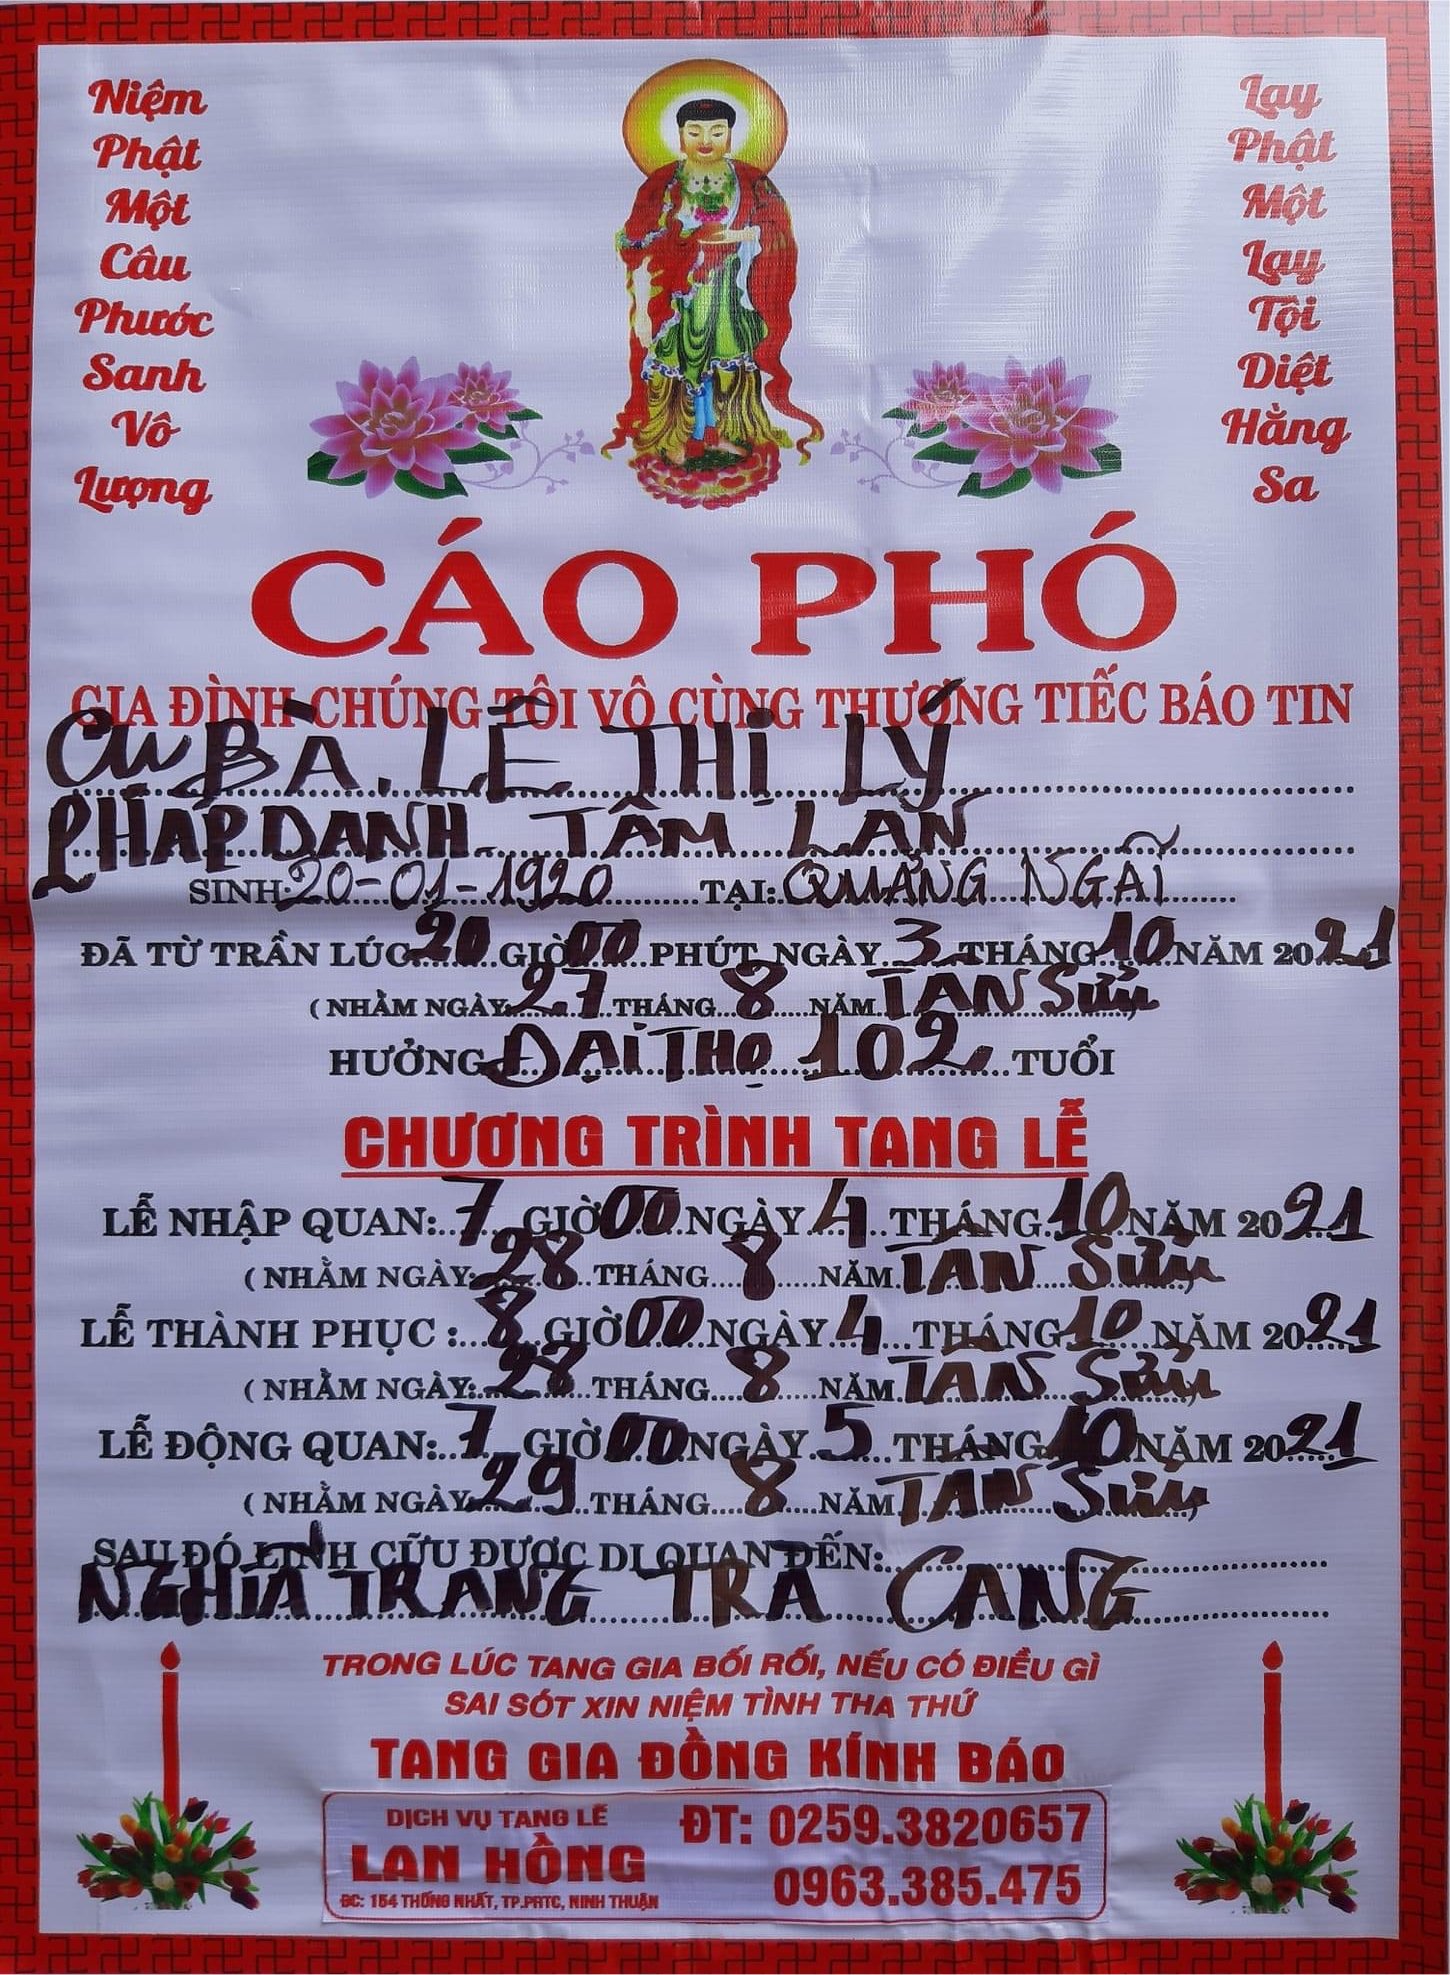 Niệm
Phật
Một
Câu
Phước
Sanh
Vô
Lượng
Lạy
Phật
Một
Lạy
Tội
Diệt
Hằng
Sa
CÁO PHÓ
GIA ĐÌNH CHÚNG TÔI VÔ CÙNG THƯƠNG TIẾC BÁO TIN
CỤ BÀ. LÊ THỊ LÝ
PHÁP DANH. TÂM LAN
SINH: 20-01-1920 TẠI: QUẢNG NGÃI
ĐÃ TỪ TRẦN LÚC 20 GIỜ 00 PHÚT NGÀY 3 THÁNG 10 NĂM 2021
( NHẰM NGÀY: 27 THÁNG 8 NĂM TAN SỬU )
HƯỞNG ĐẠI THỌ 102 TUỔI
CHƯƠNG TRÌNH TANG LỄ
LỄ NHẬP QUAN: 7 GIỜ 00 NGÀY 4 THÁNG 10 NĂM 2021
( NHẰM NGÀY: 28 THÁNG 8 NĂM TAN SỬU )
LỄ THÀNH PHỤC : 8 GIỜ 00 NGÀY 4 THÁNG 10 NĂM 2021
( NHẰM NGÀY: 28 THÁNG 8 NĂM TAN SỬU )
LỄ ĐỘNG QUAN: 7 GIỜ 00 NGÀY 5 THÁNG 10 NĂM 2021
( NHẰM NGÀY 29 THÁNG 8 NĂM TAN SỬU )
SAU ĐÓ LINH CỮU ĐƯỢC DI QUAN ĐẾN:
NGHĨA TRANG TRÀ CANG
TRONG LÚC TANG GIA BỐI RỐI, NẾU CÓ ĐIỀU GÌ
SAI SÓT XIN NIỆM TÌNH THA THỨ
TANG GIA ĐỒNG KÍNH BÁO
DỊCH VỤ TANG LỄ
LAN HỒNG
ĐC: 154 THỐNG NHẤT, TP.PRTC, NINH THUẬN
ĐT: 0259.3820657
0963.385.475